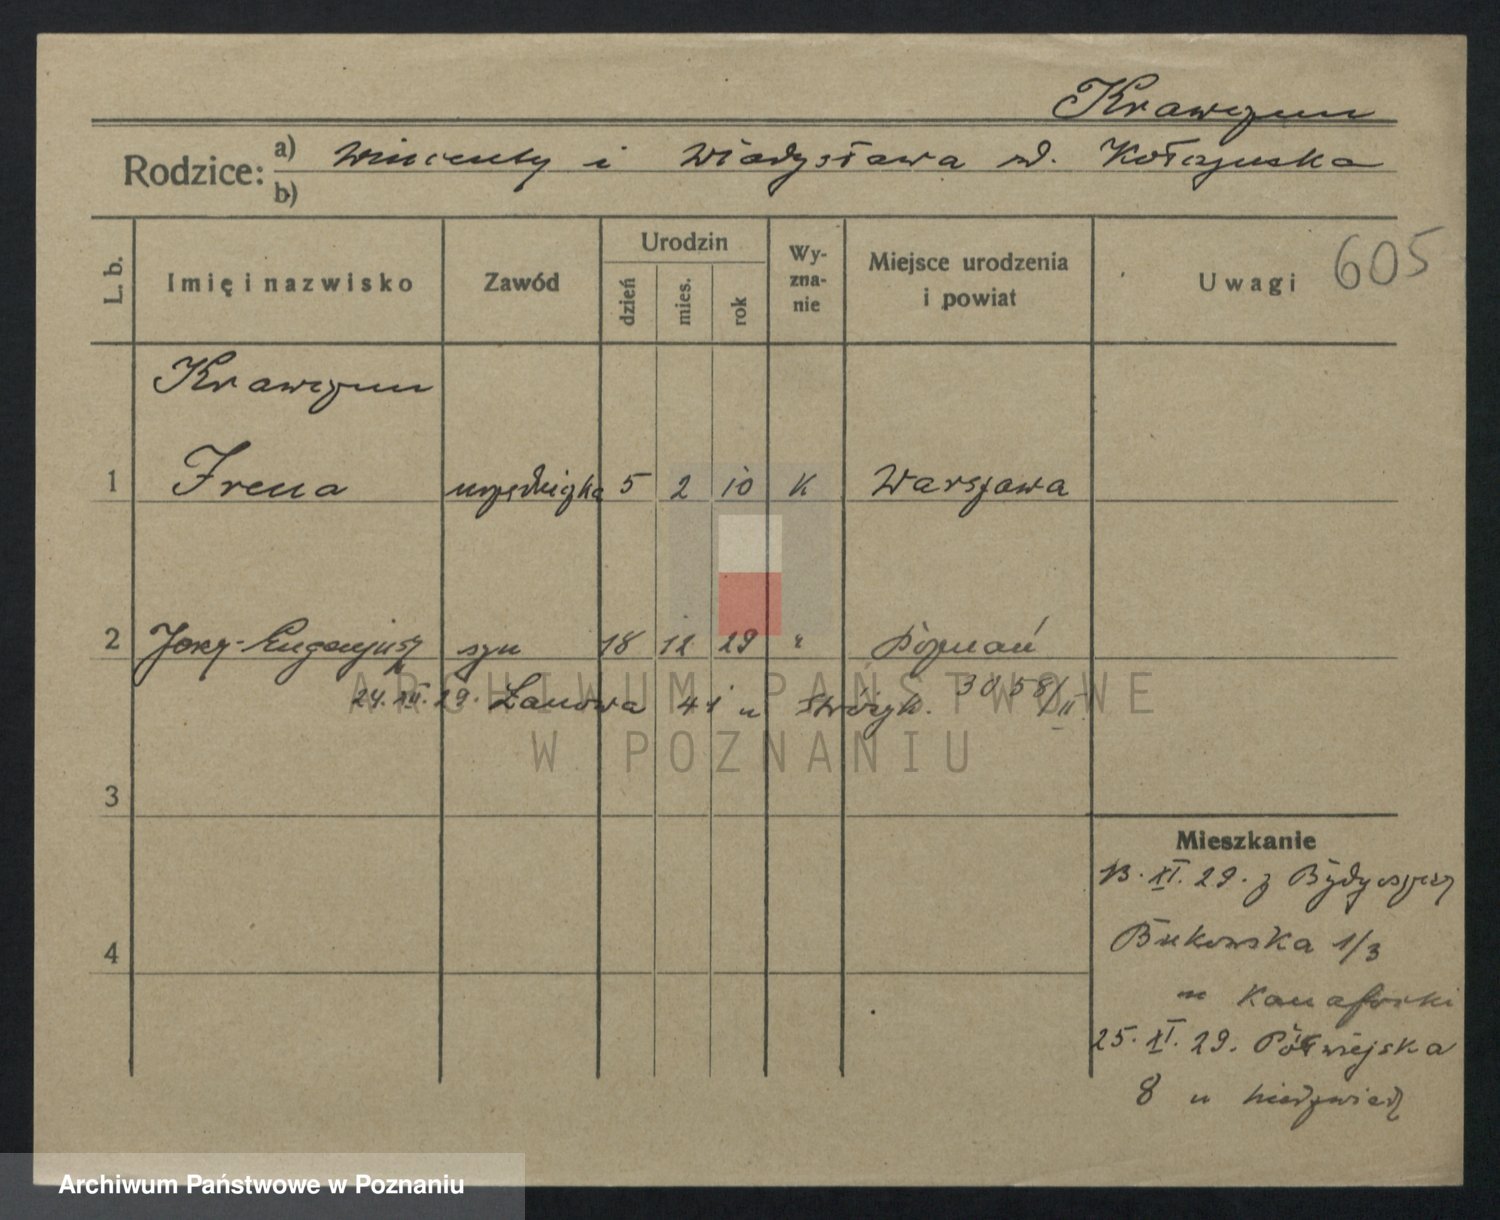 Krawczun
Rodzice: a) Wincenty i Władysława zd. Kołczyńska
b)
L. b. Imię i nazwisko Zawód Urodzin dzień mies. rok Wy-zna-nie Miejsce urodzenia i powiat Uwagi 605
Krawczun
1 Irena urzędniczka 5 2 10 K Warszawa
2 Jerzy-Eugenjusz syn 18 12 29 " Poznań
24. XII. 29. Łanowa 41 u Stróżyk. 3058/II
ARCHIWUM PAŃSTWOWE
W POZNANIU
3
Mieszkanie
13. XI. 29. z Bydgoszczy
4 Bukowska 1/3
u
25. XI. 29. Półwiejska
8 u Niedźwiedź
Archiwum Państwowe w Poznaniu